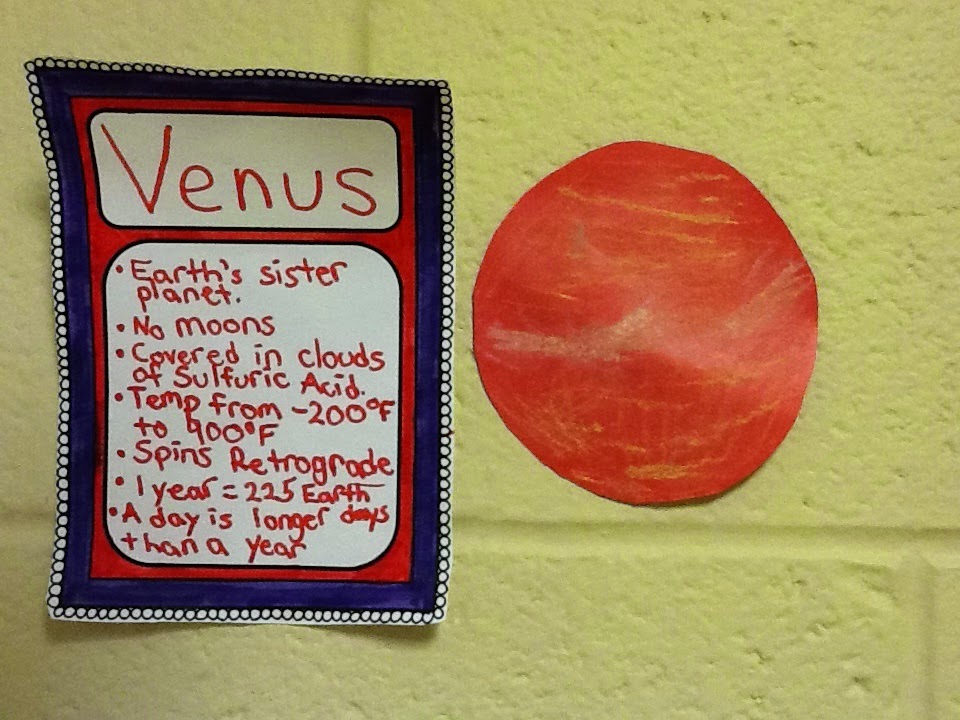 Venus
• Earth's sister
planet.
• No moons
• Covered in clouds
of Sulfuric Acid.
• Temp from -200°F
to 900°F
• Spins Retrograde
• 1 year = 225 Earth
• A day is longer days
than a year